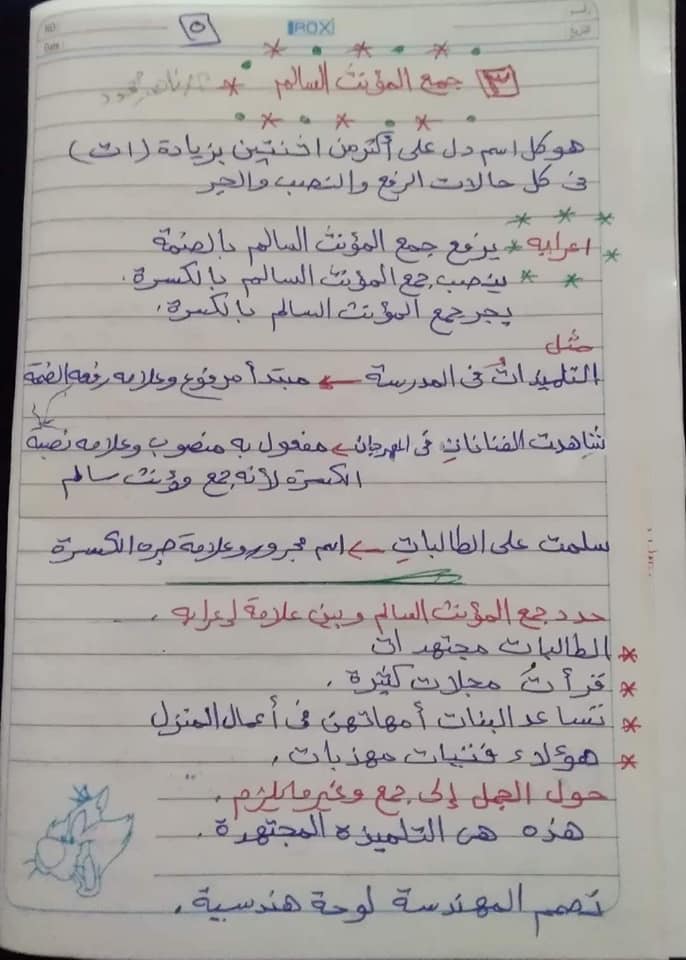 ٥
IROX
No:
Date:
٣ جمع المؤنث السالم
هو كل اسم دل على أكثر من اثنتين بزيادة (ات)
فى كل حالات الرفع والنصب والجر
اعرابه * يرفع جمع المؤنث السالم بالضمة
* ينصب جمع المؤنث السالم بالكسرة.
يجر جمع المؤنث السالم بالكسرة.
مثل
التلميذاتُ فى المدرسة ← مبتدأ مرفوع وعلامه رفعه الضمة
شاهدت الفنانات فى المهرجان ← مفعول به منصوب وعلامه نصبة
الكسرة لأنه جمع مؤنث سالم
سلمت على الطالباتِ ← اسم مجرور وعلامة جره الكسرة
حدد جمع المؤنث السالم وبين علامة إعرابه.
* الطالبات مجتهدات
* قرأتُ مجلات كثيرة.
* تساعد البنات أمهاتهن فى أعمال المنزل
* هؤلاء فتيات مهذبات.
حول الجمل إلى جمع وغير مايلزم.
هذه هى التلميذة المجتهدة.
تصمم المهندسة لوحة هندسية.